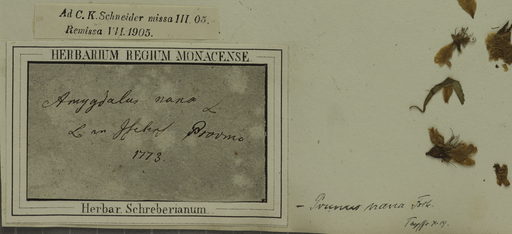 Ad C. K. Schneider missa III. 05.
Remissa VII. 1905.
HERBARIUM REGIUM MONACENSE
Amygdalus nana L
1773.
Herbar. Schreberianum
– Prunus nana